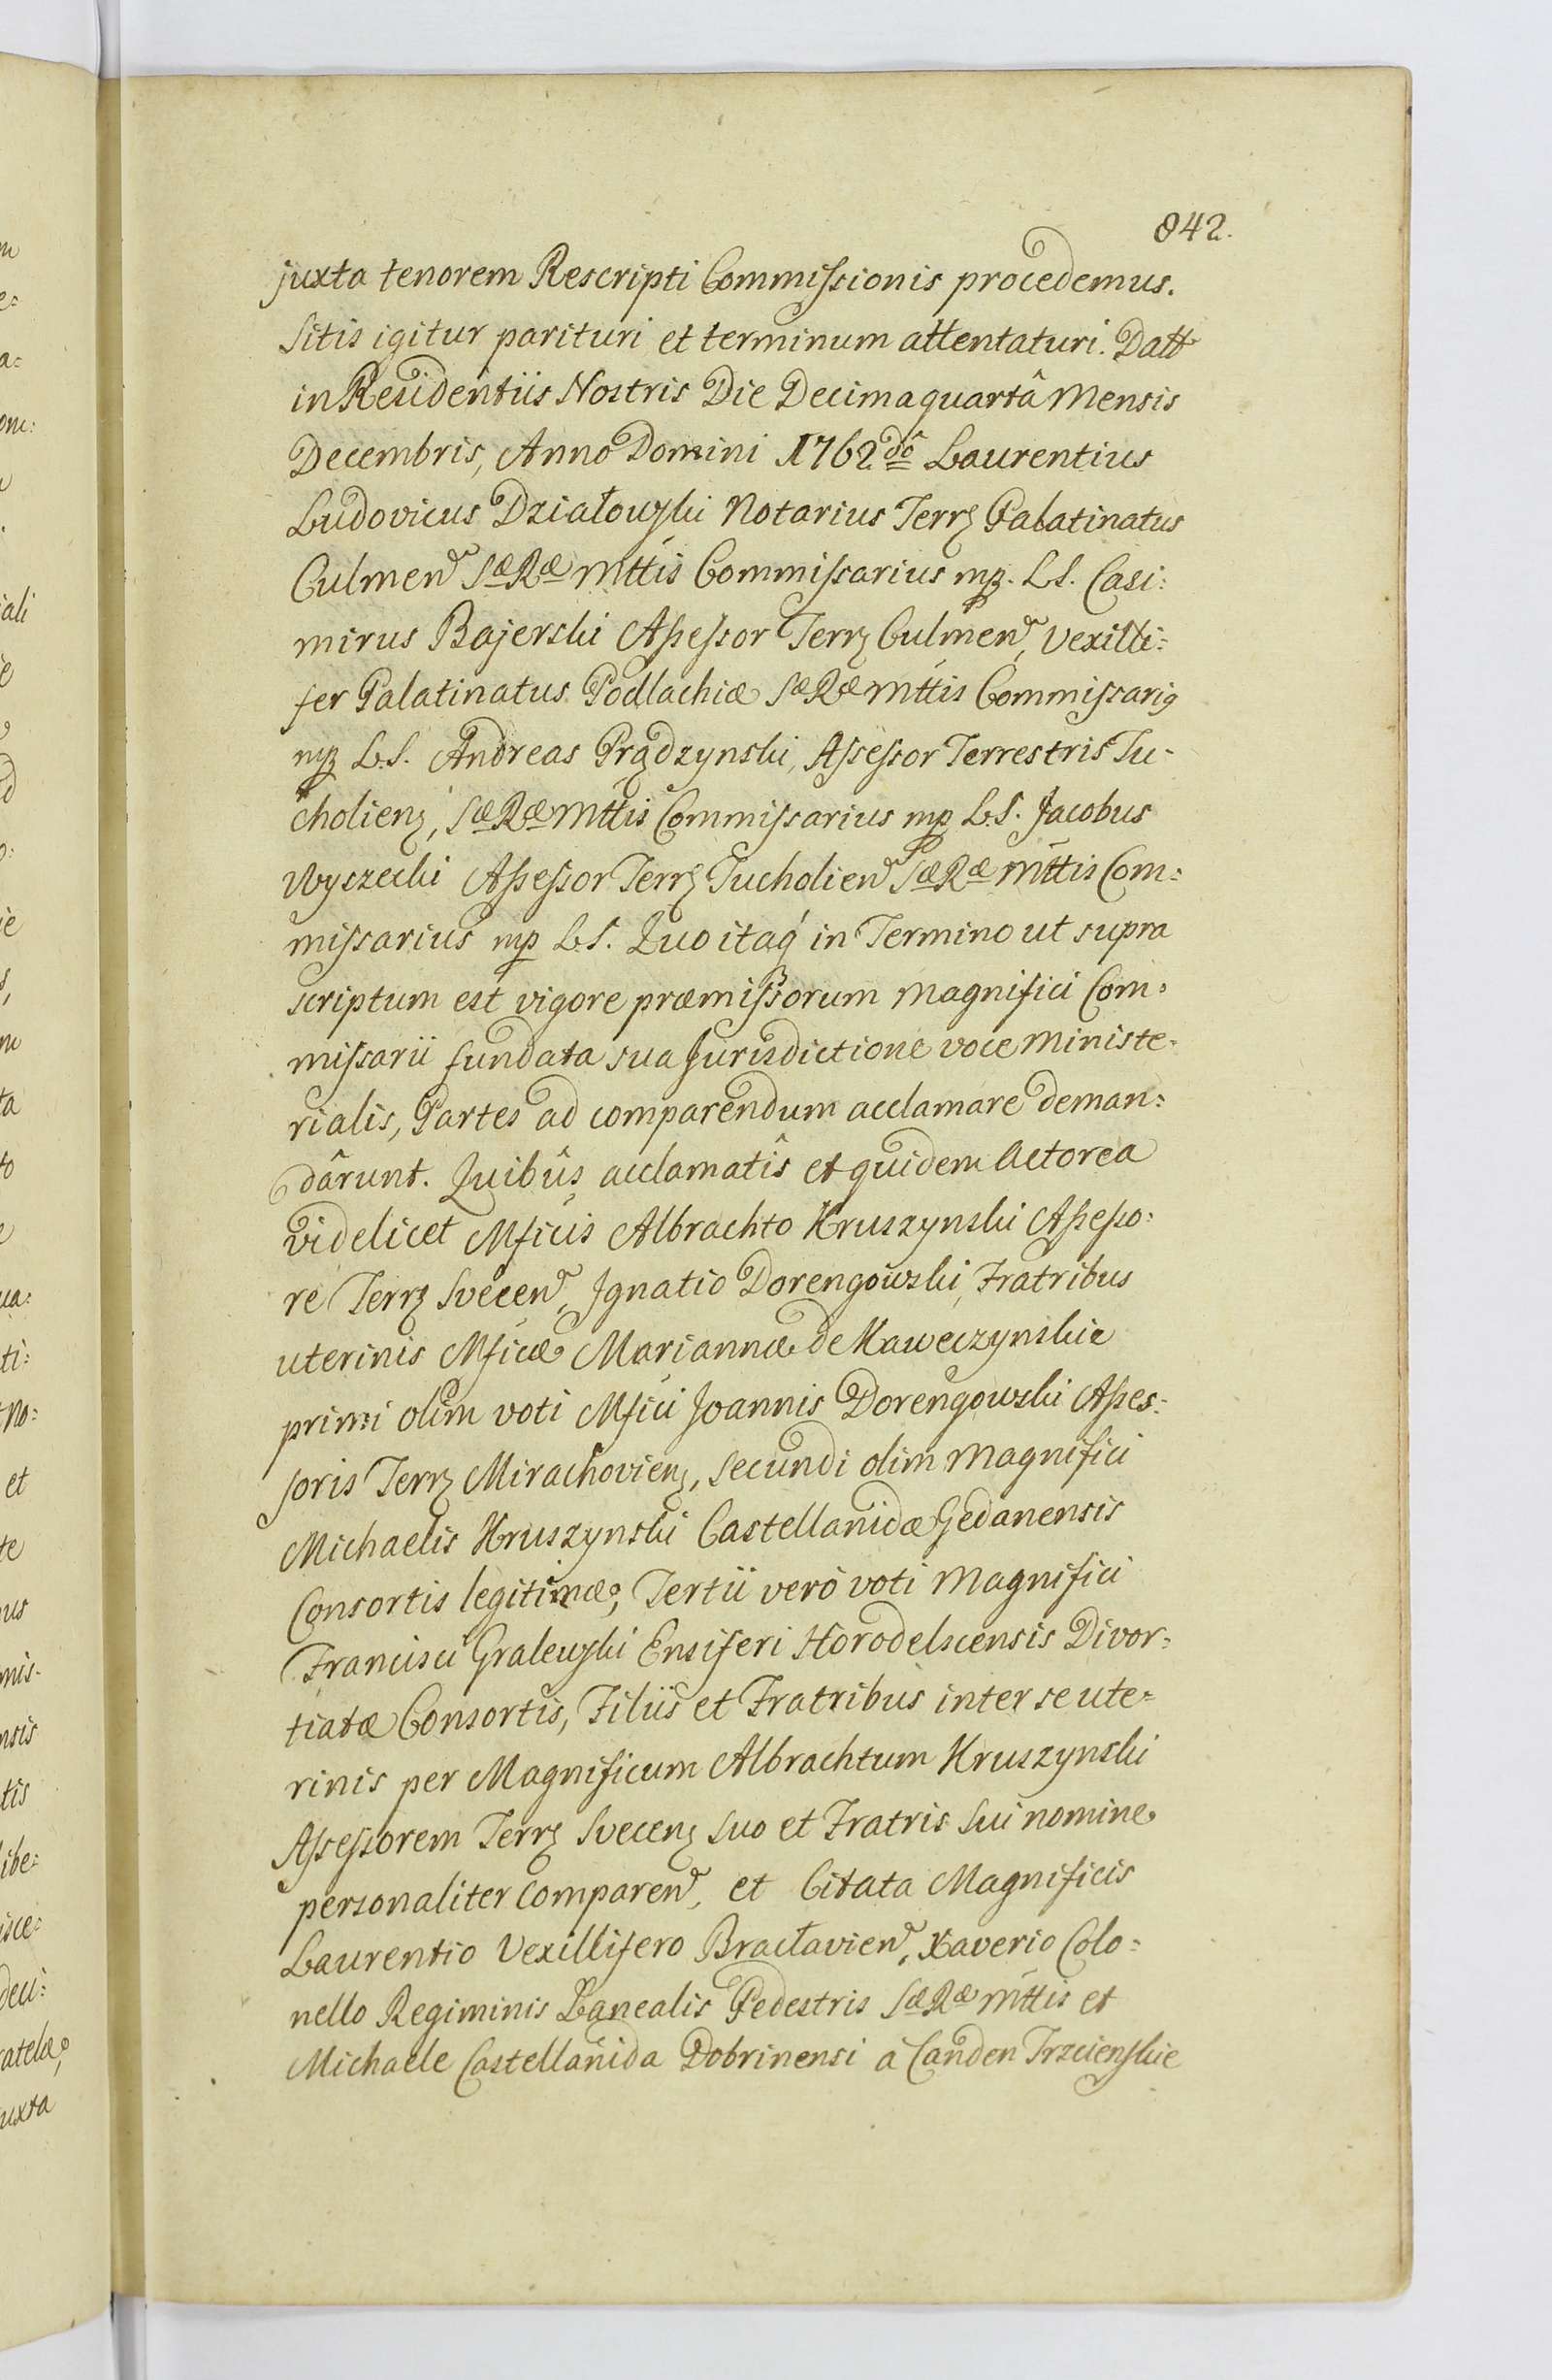 842.
juxta tenorem Rescripti Commissionis procedemus.
Sitis igitur parituri et terminum attentaturi. Datt
in Residentiis Nostris Die Decima quartâ Mensis
Decembris, Anno Domini 1762dô Laurentius
Ludovicus Działowski Notarius Terrz Palatinatus
Culmen SæRæ Mttis Commissarius mp. LS. Casi:
mirus Bajerski Assessor Terrz Culmen, Vexilli:
fer Palatinatus Podlachiæ SæRæ Mttis Commissarig
mp L.S. Andreas Prądzynski, Assessor Terrestris Tu-
cholienz, SæRæ Mttis Commissarius mp L.S. Jacobus
Wyczechi Assessor Terrz Tucholien SæRæ Mttis Com:
missarius mp L.S. Quo itaq́ in Termino ut supra
scriptum est vigore præmissorum Magnifici Com:
missarii fundata sua Jurisdictione voce Ministe:
rialis, Partes ad comparendum acclamare deman:
dârunt. Quibûs acclamatîs et quidem Actorea
videlicet Mficis Albrachto Kruszynski Assesso:
re Terrz Svecen, Ignatio Dorengowski, Fratribus
uterinis Mficæ Mariannæ de Kaweczynskie
primi olim voti Mfici Joannis Dorengowski Asses:
soris Terrz Mirachovienz, Secundi olim Magnifici
Michaelis Kruszynski Castellanidæ Gedanensis
Consortis legitimæ, Tertii verò voti Magnifici
Francisci Gralewski Ensiferi Horodelscensis Divor:
tiatæ Consortis, Filiis et Fratribus inter se ute:
rinis per Magnificum Albrachtum Kruszynski
Assessorem Terrz Svecenz Suo et Fratris Sui nomine
personaliter Comparen, et Citata Magnificis
Laurentio Vexillifero Bracłavien, Xaverio Colo:
nello Regiminis Lanealis Pedestris SæRæ Mttis et
Michaele Castellanida Dobrinensi à Canden Trzcienskie